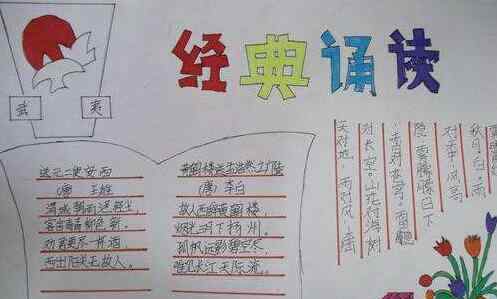 经典诵读
武 夷
送元二使安西
(唐) 王维
渭城朝雨浥轻尘,
客舍青青柳色新。
劝君更尽一杯酒,
西出阳关无故人。
黄鹤楼送孟浩然之广陵
(唐) 李白
故人西辞黄鹤楼,
烟花三月下扬州。
孤帆远影碧空尽,
唯见长江天际流。
天对地 雨对风。陆
对长空。山花对海树
日对苍穹。雷
隐 雾 日下
对天中。风高
秋月白。雨